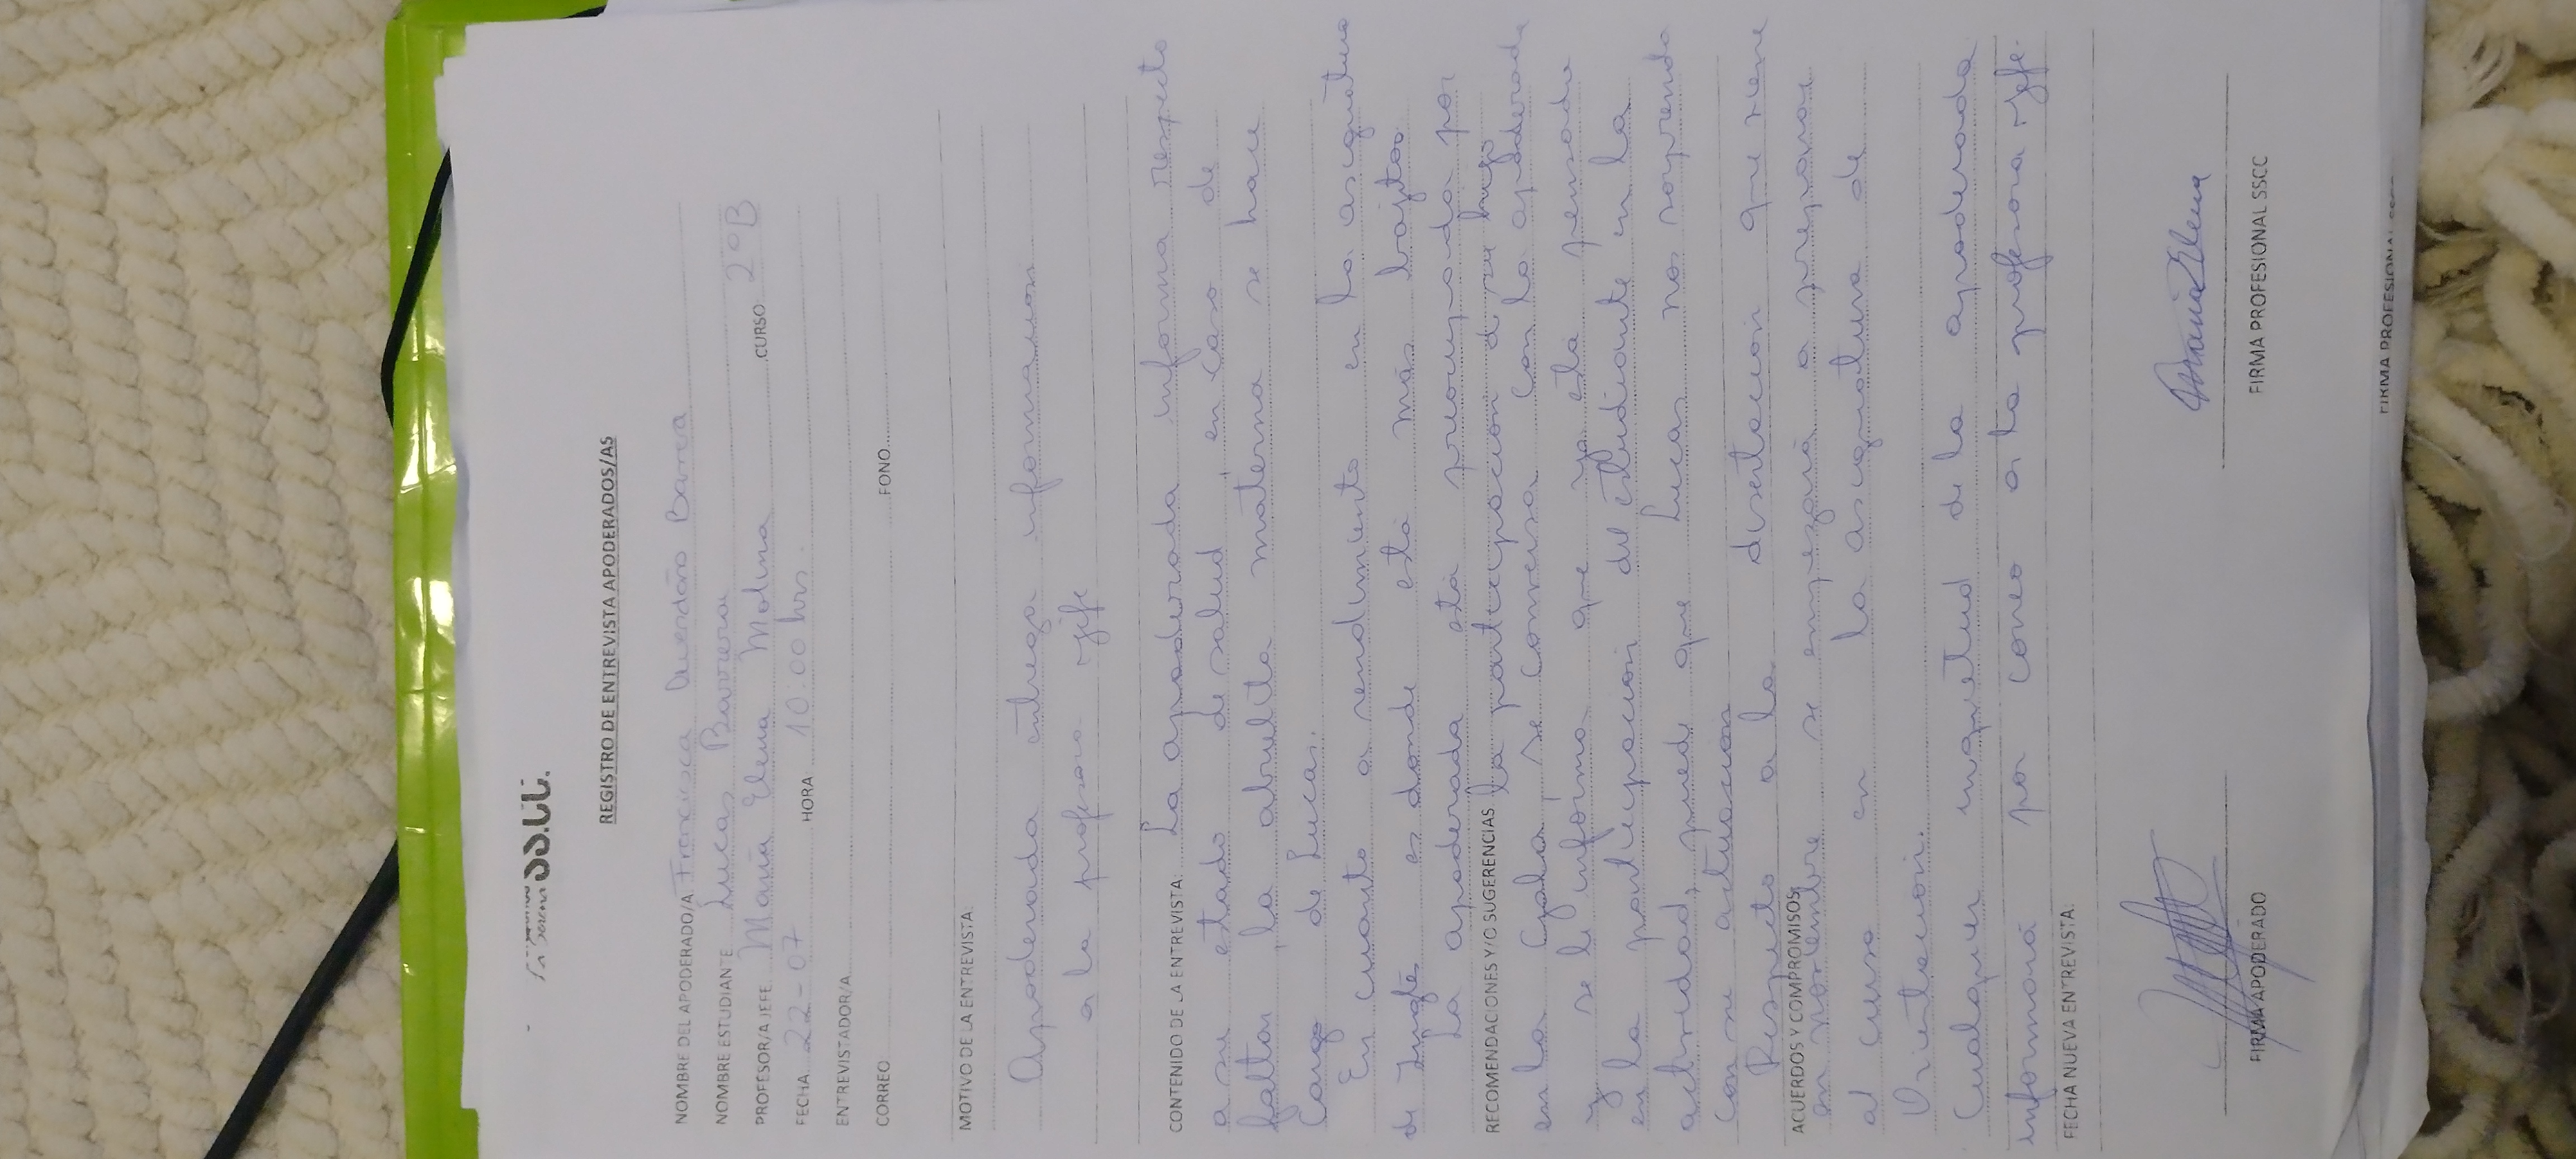 La Serena SS.CC.
REGISTRO DE ENTREVISTA APODERADOS/AS
NOMBRE DEL APODERADO/A Francisca Avendaño Barra
NOMBRE ESTUDIANTE Lucas Barrera
PROFESOR/A JEFE María Elena Molina CURSO 2ºB
FECHA 22-07 HORA 10:00 hrs.
ENTREVISTADOR/A
CORREO FONO
MOTIVO DE LA ENTREVISTA:
Apoderada entrega informacion
a la profesora jefe
CONTENIDO DE LA ENTREVISTA: La apoderada informa respecto
a su estado de salud, en caso de
faltar la abuelita materna se hace
cargo de Lucas.
En cuanto a rendimiento en la asignatura
de Inglés es donde está más bajito
La apoderada está preocupada por
RECOMENDACIONES Y/O SUGERENCIAS la participación de su hijo
en la Gala, se conversa con la apoderada
y se le informa que ya está pensado
en la participación del estudiante en la
actividad, puede que Lucas nos sorprenda
con su actuación
Respecto a la disertación que tiene
ACUERDOS Y COMPROMISOS:
en noviembre se empezará a preparar
al curso en la asignatura de
Orientación.
Cualquier inquietud de la apoderada
informará por correo a la profesora jefe.
FECHA NUEVA ENTREVISTA:
María Elena
FIRMA APODERADO FIRMA PROFESIONAL SSCC
FIRMA PROFESIONAL SSCC